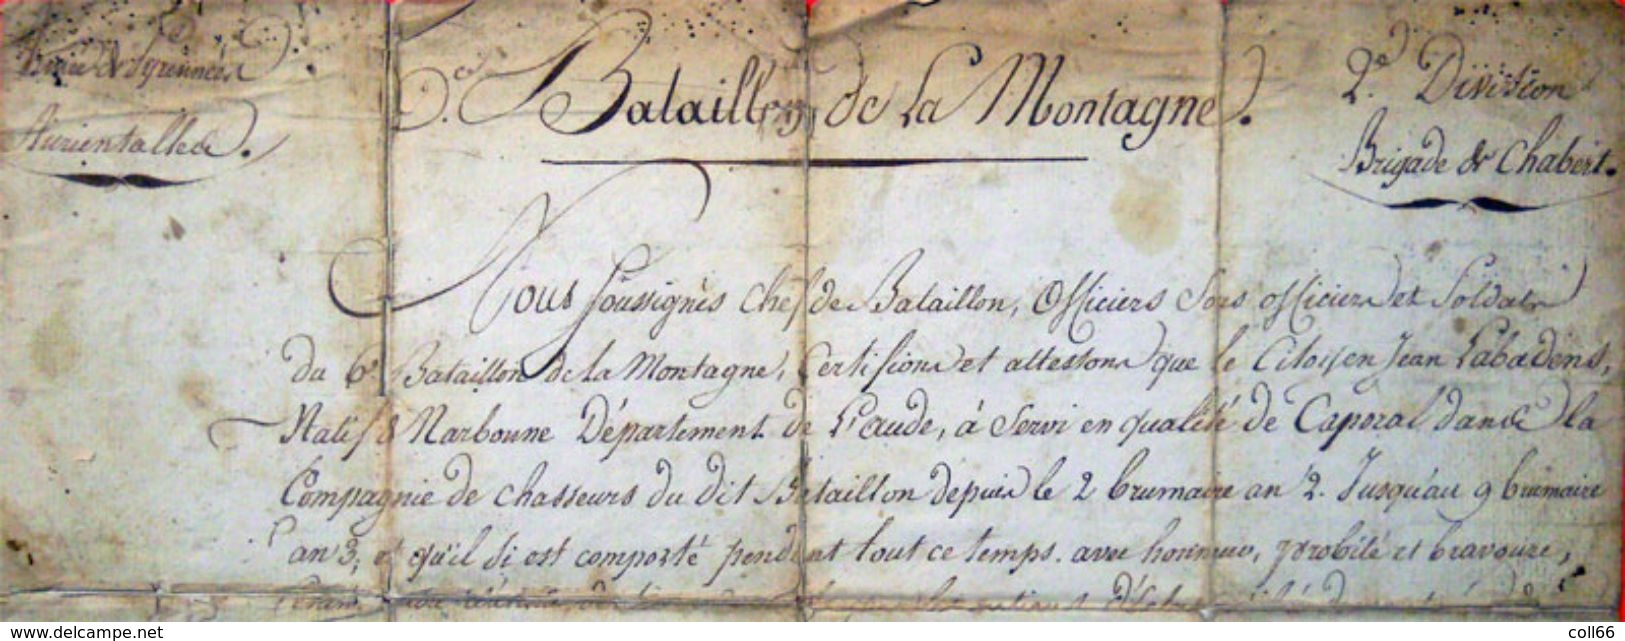 Armée de Pyrennées
Aurientalles.
6.e Bataillon de La Montagne.
2.e Division
Brigade de Chabert.
Nous Soussignès chef de Bataillon, Officiers Sous officiers et Soldats
du 6.e Bataillon de la Montagne, Certifions et attestons que le Citoyen Jean Labadens,
Natif de Narbonne Département de L'aude, à Servi en qualité de Caporal dans la
Compagnie de chasseurs du dit Bataillon depuis le 2 brumaire an 2. Jusqu'au 9 brumaire
an 3, et qu'il Si est comporté pendant tout ce temps. avec honneur, probité et bravoure,
https://www.delcampe.net
coll66